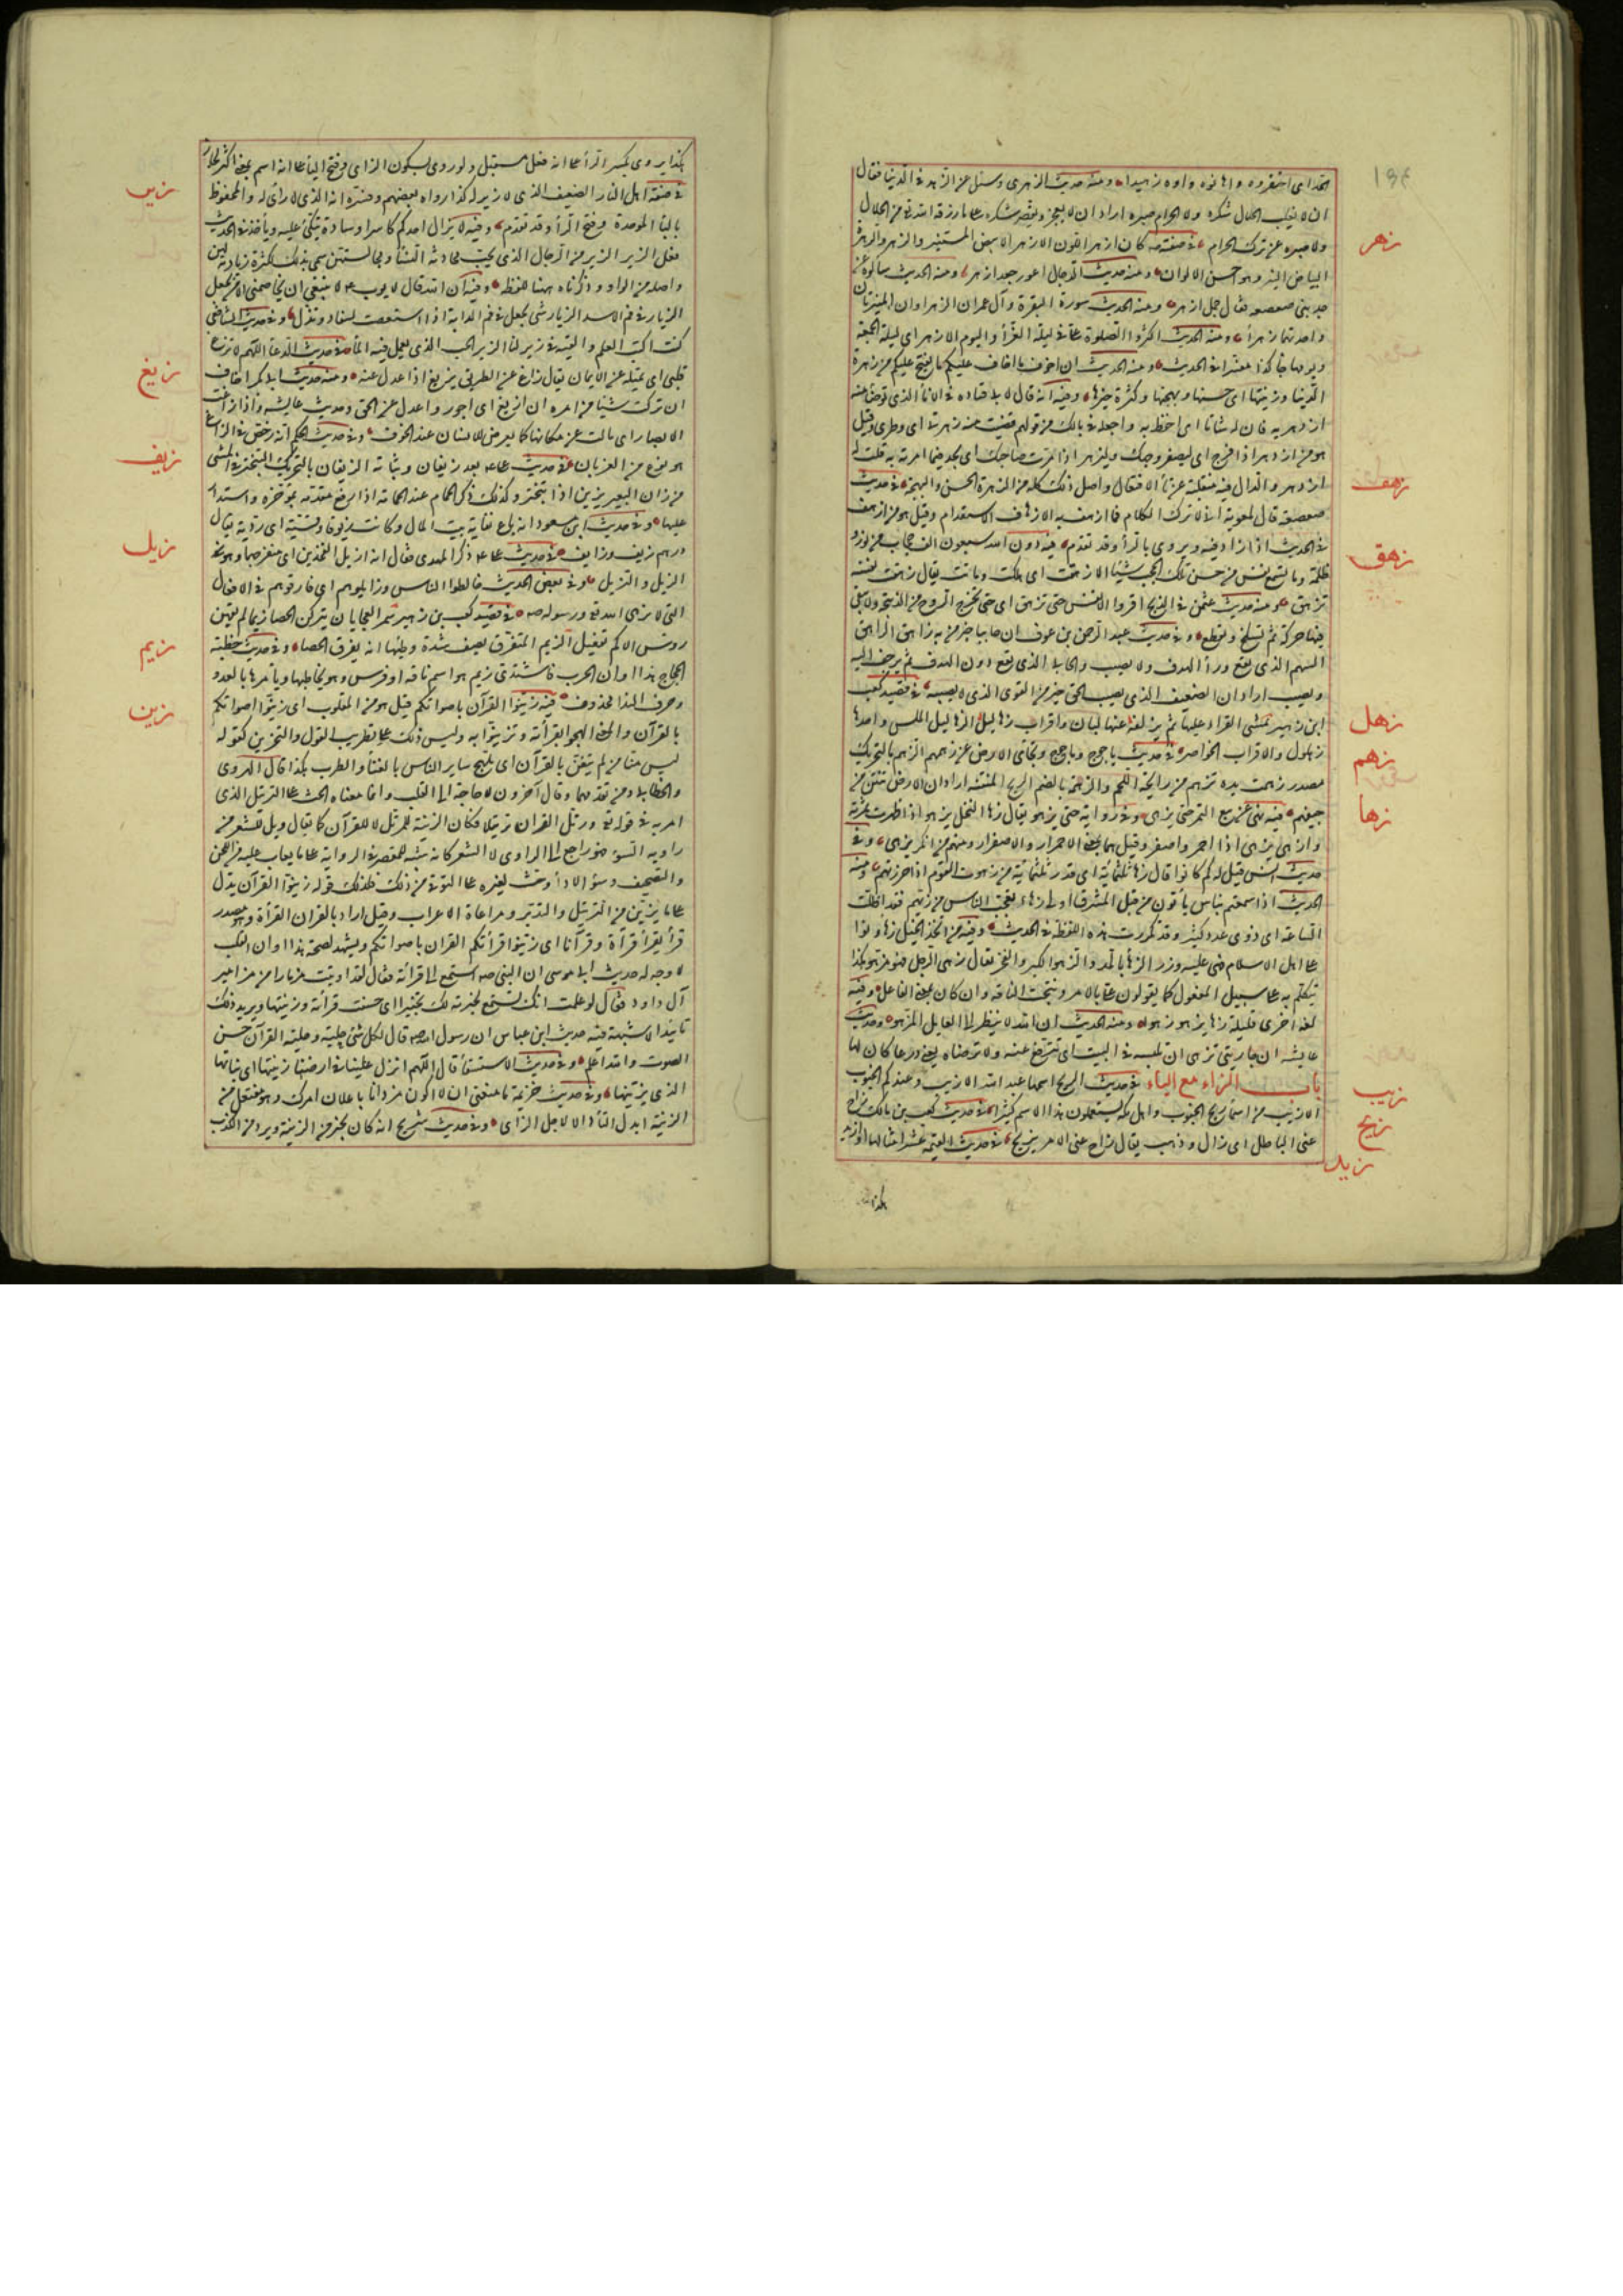 ١٣٤
اتخذاى احتقروه واهانوه وراوه زهيدا ومنه حديث الزهرى وسئل عن الزهد فى الدنيا فقال
ان لا يغلب الحلال شكره ولا الحرام صبره اراد ان لا يعجز ويقصر شكره على ما رزقه الله تع من الحلال
ولا صبره عن ترك الحرام فى صفته صه كان ازهر اللون الازهر الابيض المستنير والزهر والزهرة
زهر
البياض النير وهو احسن الالوان ومنه حديث الدجال اعور جعد ازهر ومنه الحديث سالوه عن
جد بنى صعصعه فقال جمل ازهر ومنه الحديث سورة البقرة وآل عمران الزهراوان المنيرتان
واحدتهما زهرأ ومنه الحديث اكثروا الصلوة على فى ليلة الغرأ واليوم الازهر اى ليلة الجمعة
ويومها جا كذا مفسرا فى الحديث ومنه الحديث ان اخوف ما اخاف عليكم ما يفتح عليكم من زهرة
الدنيا وزينتها اى حسنها وبهجتها وكثرة خيرها وفيه انه قال لابى قتاده فى الاناأ الذى توضأ منه
ازدهر به فان له شانا اى احتفظ به واجعله فى بالك من قولهم قضيت منه زهرتى اى وطرى وقيل
هو من ازدهر اذا فرح اى ليسفر وجهك وليزهر اذا امرت صاحبك ان يجد فيما امرته به قلت له
ازدهر والدال فيه منقلبة عن تأ الافتعال واصل ذلك كله من الزهرة الحسن والبهجة فى حديث
زهف
صعصعة قال لمعوية انى لاترك الكلام فما ازهف به الازهاف الاستقدام وقيل هو من ازهف
فى الحديث اذا زاد فيه ويروى بالرأ وقد تقدم فيه دون الله سبعون الف حجاب من نور و
زهق
ظلمة وما تسمع نفس من حس تلك الحجب شيئا الا زهقت اى هلكت وماتت يقال زهقت نفسه
تزهق ومنه حديث عثمن فى الذبح اقروا الانفس حتى تزهق اى حتى تخرج الروح من الذبيحة ولا يبقى
فيها حركة ثم تسلخ وتقطع وفى حديث عبد الرحمن بن عوف ان حابيا خير من زاهق الزاهق
السهم الذى يقع ورأ الهدف ولا يصيب والحابى الذى يقع دون الهدف ثم يزحف اليه
ويصيب اراد ان الضعيف الذى يصيب الحق خير من القوى الذى لا يصيبه فى قصيد كعب
زهل
ابن زهير يمشى القراد عليها ثم يزلقه عنها لبان واقراب زهاليل الزهاليل الملس واحدها
زهلول والاقراب الخواصر فى حديث ياجوج وماجوج وتجاى الارض من زهمهم الزهم بالتحريك
زهم
مصدر زهمت يده تزهم من رايحة اللحم والزهمة بالضم الريح المنتنة اراد ان الارض تنتن من
جيفهم فيه نهى عن بيع الثمر حتى يزهى وفى رواية حتى يزهو يقال زها النخل يزهو اذا ظهرت ثمرته
زها
وازهى يزهى اذا احمر واصفر وقيل هما بمعنى الاحمرار والاصفرار ومنهم من انكر يزهى وفى
حديث انس قيل له كم كانوا قال زهأ ثلثمائة اى قدر ثلثمائة من زهوت القوم اذا حزرتهم ومنه
الحديث اذا سمعتم بناس يأتون من قبل المشرق اولى زهاء يعجب الناس من زيهم فقد اظلت
الساعة اى ذوى عدد كثير وقد تكررت هذه اللفظة فى الحديث وفيه من اتخذ الخيل زهأ ونوأ
على اهل الاسلام فهى عليه وزر الزهأ بالمد والزهو الكبر والفخر يقال زهى الرجل فهو مزهو هكذا
يتكلم به على سبيل المفعول كما يقولون عنى بالامر ونتجت الناقة وان كان بمعنى الفاعل وفيه
لغة اخرى قليلة زها يزهو زهوا ومنه الحديث ان الله لا ينظر الى العايل المزهو وحديث
عايشه ان جاريتى تزهى ان تلبسه فى البيت اى تترفع عنه ولا ترضاه يعنى درعا كان لها
باب الزاء مع الياء فى حديث الريح اسمها عند الله الازيب وعندكم الجنوب
زيب
الازيب من اسمأ ريح الجنوب واهل مكة يستعملون هذا الاسم كثيرا فى حديث كعب بن مالك زاح
زيح
عنى الباطل اى زال وذهب يقال زاح عنى الامر يزيح فى حديث القيمة عشر امثالها وازيد
زيد
هكذا
هكذا يروى بكسر الزأ على انه فعل مستقبل ولو روى بسكون الزاى وفتح اليأ على انه اسم بمعنى اكثر لجاز
فى صفة اهل النار الضعيف الذى لا زير له كذا رواه بعضهم وفسره انه الذى لا رأى له والمحفوظ
زير
بالبأ الموحدة وفتح الزأ وقد تقدم وفيه لا يزال احدكم كاسرا وساده يتكئ عليه ويأخذ فى الحديث
فعل الزير الزير من الرجال الذى يحب محادثة النسأ ومجالستهن سمى بذلك لكثرة زيارته لهن
واصله من الواو وذكرناه ههنا للفظه وفيه ان الله قال لايوب عم لا ينبغى ان يخاصمنى الا من يجعل
الزيار فى فم الاسد الزيار شئ يجعل فى فم الدابة اذا استصعبت لتنقاد وتذل وفى حديث الشافعى
كنت اكتب العلم والقيه فى زير لنا الزير الحب الذى يعمل فيه المأ فى حديث الدعأ اللهم لا تزغ
زيغ
قلبى اى تميله عن الايمان يقال زاغ عن الطريق يزيغ اذا عدل عنه ومنه حديث ابى بكر اخاف
ان تركت شيئا من امره ان ازيغ اى اجور واعدل عن الحق وحديث عايشه واذ زاغت
الابصار اى مالت عن مكانها كما يعرض للانسان عند الخوف وفى حديث الحكم انه رخص فى الزاغ
هو نوع من الغربان فى حديث على عم بعد زيفان وثباته الزيفان بالتحريك التبختر فى المشى
زيف
من زاف البعير يزيف اذا تبختر وكذلك ذكر الحمام عند الحمامة اذا رفع مقدمه بمؤخره واستدار
عليها وفى حديث ابن مسعود انه باع نفاية بيت المال وكانت زيوفا وقسية اى ردية يقال
درهم زيف وزايف فى حديث على عم ذكر المهدى فقال انه ازيل الفخذين اى منفرجهما وهو من
زيل
الزيل والتزيل وفى بعض الحديث خالطوا الناس وزايلوهم اى فارقوهم فى الافعال
التى لا يرضى الله تع ورسوله صه فى قصيد كعب بن زهير سمر العجايات يتركن الحصا زيما لم يقهن
رؤس الاكم تنعيل الزيم المتفرق يصف شدة وطئها انه يفرق الحصا وفى حديث خطبته
زيم
الحجاج هذا اوان الحرب فاشتدى زيم هو اسم ناقة او فرس وهو يخاطبها ويأمرها بالعدو
وحرف الندا محذوف فيه زينوا القرآن باصواتكم قيل هو من المقلوب اى زينوا اصواتكم
زين
بالقرآن والمعنى الهجوا بقرأته وتزينوا به وليس ذلك على تطريب القول والتحزين كقوله
ليس منا من لم يتغن بالقرآن اى يلهج ساير الناس بالغنأ والطرب هكذا قال الهروى
والخطابى ومن تقدمهما وقال آخرون لا حاجة الى القلب وانما معناه الحث على الترتيل الذى
امر به فى قوله تع ورتل القران ترتيلا فكان الزينة للمرتل لا للقرآن كما يقال ويل للشعر من
راوية السوء فهو راجع الى الراوى لا الشعر كانه تنبيه للمقصر فى الرواية على ما يعاب عليه من اللحن
والتصحيف وسؤ الادأ وحث لغيره على التوقى من ذلك فكذلك قوله زينوا القرآن يدل
على ما يزين من الترتيل والتدبر ومراعاة الاعراب وقيل اراد بالقران القرأة وهو مصدر
قرأ يقرأ قرأة وقرآنا اى زينوا قرأتكم القران باصواتكم ويشهد لصحة هذا وان القلب
لا وجه له حديث ابى موسى ان النبى صه استمع الى قرأته فقال لقد اوتيت مزمارا من مزامير
آل داود فقال لو علمت انك تستمع لحبرته لك تحبيرا اى حسنت قرأته وزينتها ويريد ذلك
تاييدا لا شبهة فيه حديث ابن عباس ان رسول الله صه قال لكل شئ حلية وحلية القرآن حسن
الصوت والله اعلم وفى حديث الاستسقأ قال اللهم انزل علينا فى ارضنا زينتها اى نباتها
الذى يزينها وفى حديث خزيمة ما منعنى ان لا اكون مزدانا باعلان امرك وهو مفتعل من
الزينة ابدل التأ دالا لاجل الزاى وفى حديث شريح انه كان يجيز من الزينة ويرد من الكذب